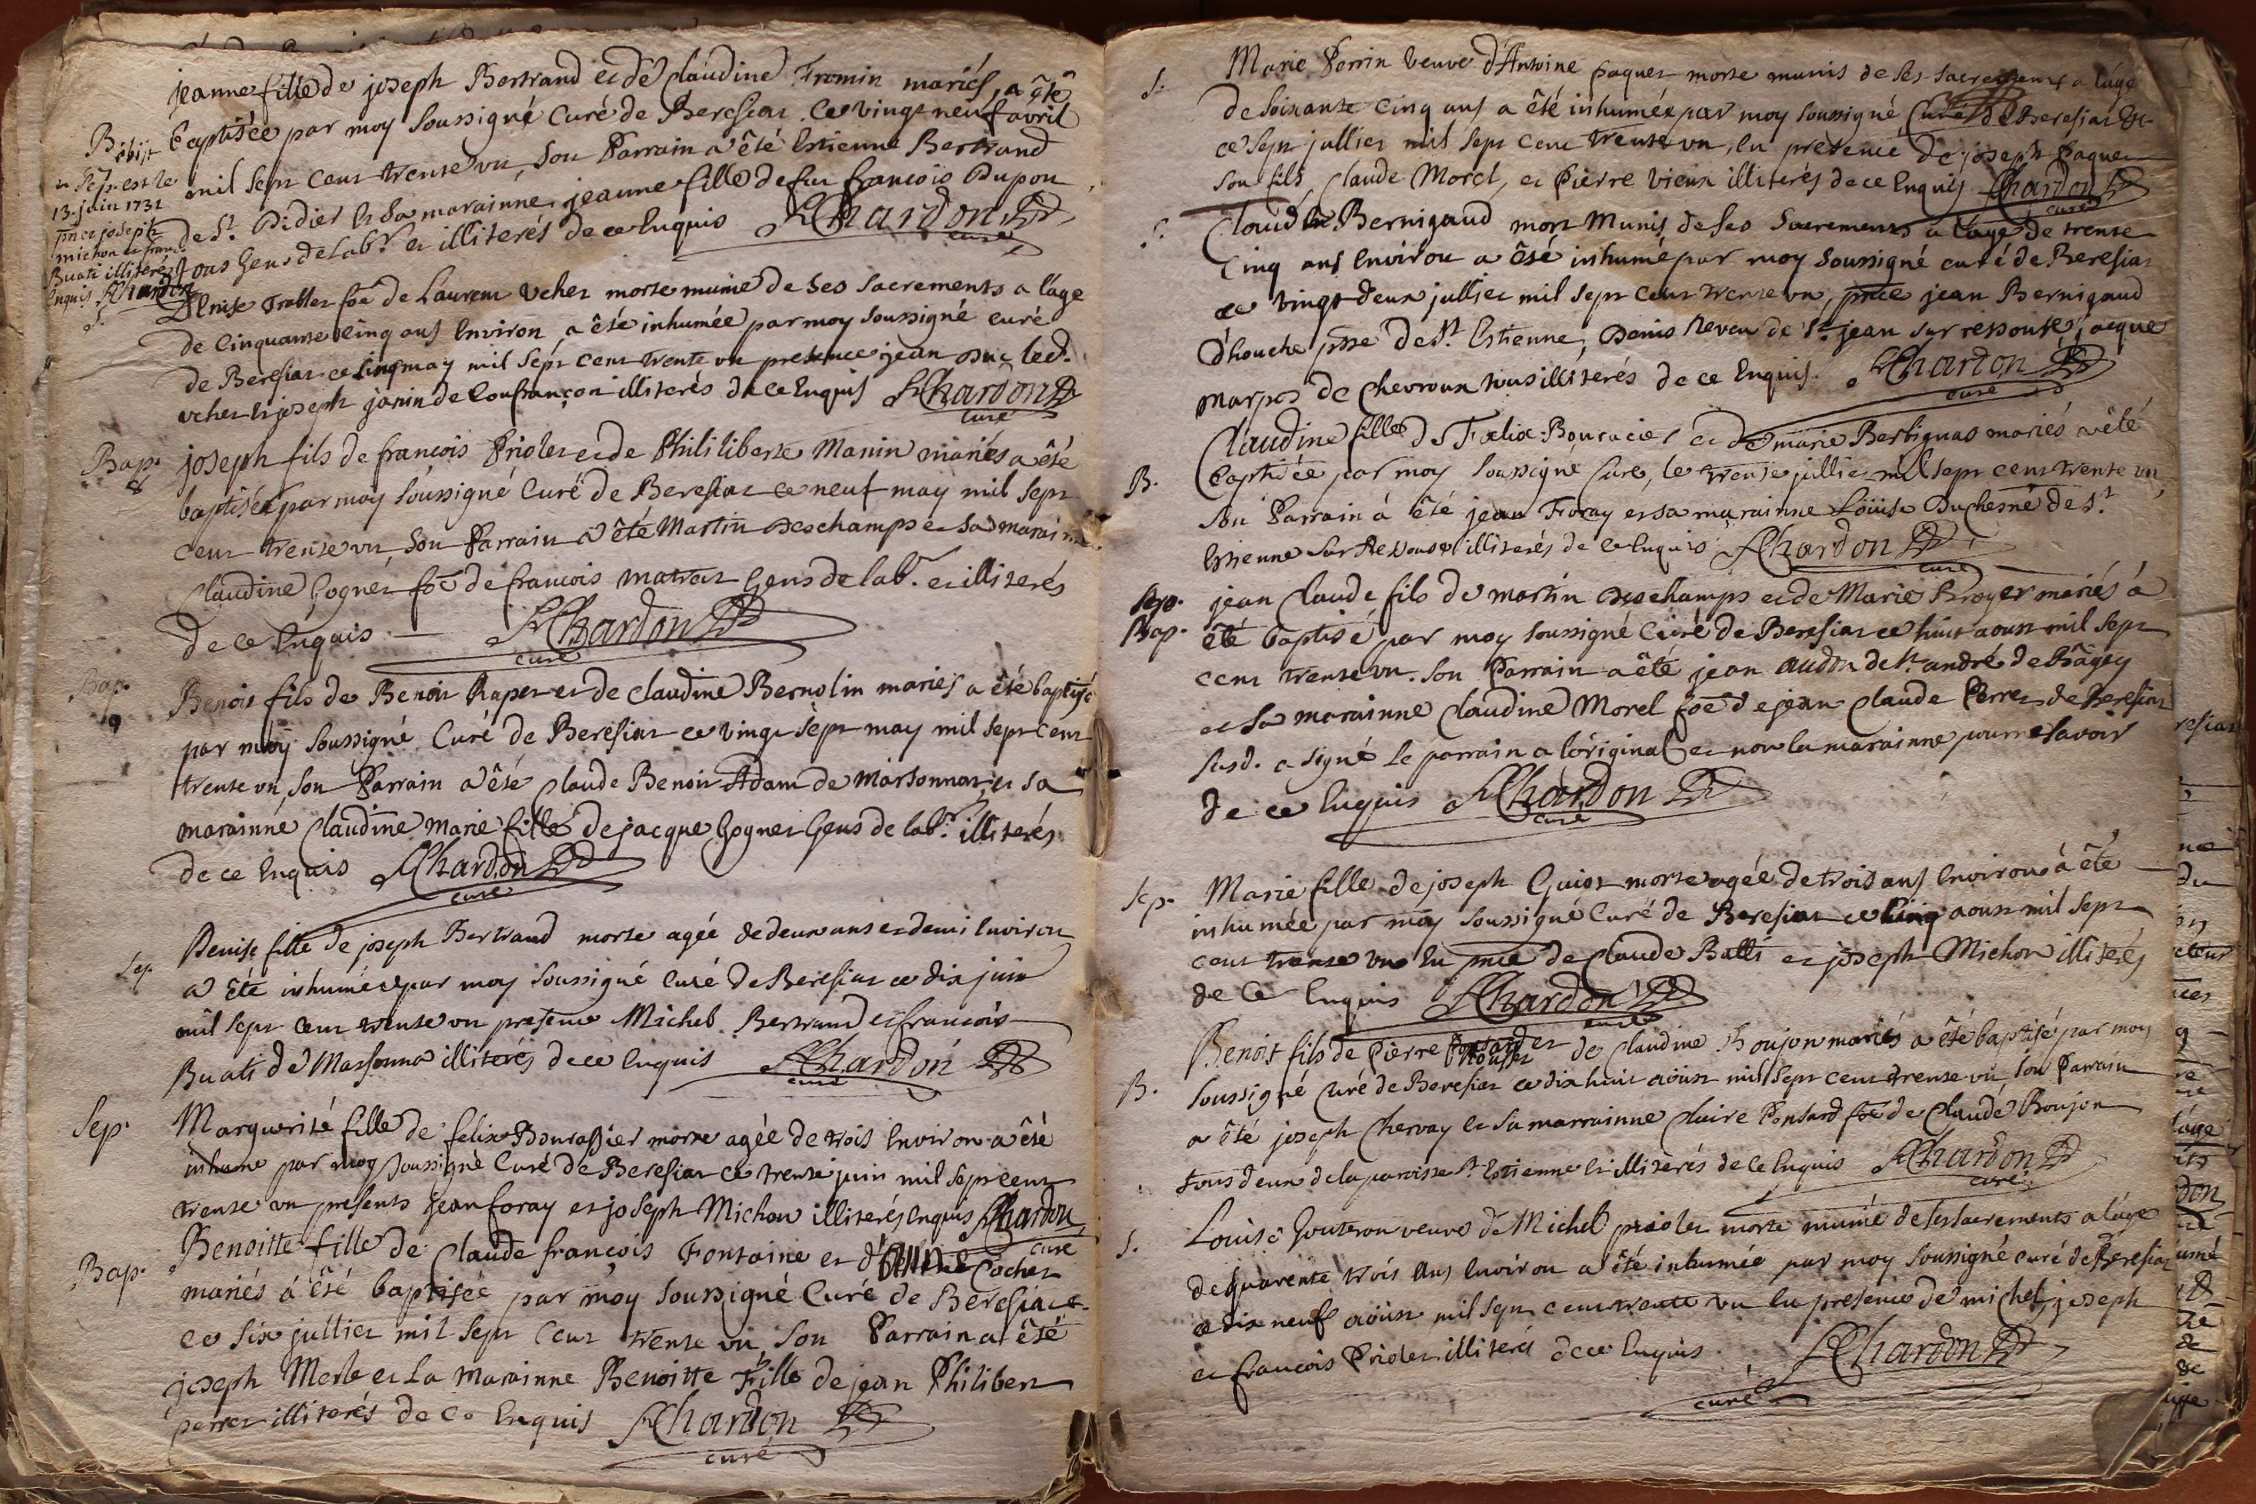 jeanne fille de joseph Bertrand et de Claudine Fromin mariés, a été
Baptisée par moy soussigné Curé de Beresiat ce vingt neuf avril
mil sept cent trente un, son Parrain a été Estienne Bertrand
de St. Didier et sa marainne jeanne fille de feu francois Dupon
tous Gens de lab.r et illiterés de ce Enquis Chardon
curé
B
obiit
et sep. est le
13. juin 1731
pnce joseph
michon et fran.
Buati illiterés
Enquis Chardon
S.
Denise Trablet foe de Laurent Vcher morte munie de ses sacrements a l'age
de Cinquante Cinq ans Environ a été inhumée par moy soussigné curé
de Beresiat ce cinq may mil sept cent trente un presence jean Duc led.
vcher et joseph janin de Confrançon illiterés de ce Enquis Chardon
curé
Bap.
8
joseph fils de francois Priolet et de Philiberte Manin mariés a été
baptisé par moy soussigné Curé de Beresiat ce neuf may mil sept
cent trente un son Parrain a été Martin Deschamps et sa marainne
Claudine Gognet foe de francois matrat Gens de lab.r et illiterés
de ce Enquis — Chardon
curé
Bap.
9
Benoit fils de Benoit Rapet et de claudine Bernolin mariés a été baptisé
par moy soussigné Curé de Beresiat ce vingt sept may mil sept cent
trente un, son Parrain a été Claude Benoit Adam de Marsonnat, et sa
marainne Claudine Marie fille de jacque Gognet Gens de lab.r illiterés
de ce Enquis Chardon
curé
Sep.
Denise fille de joseph Bertrand morte agée de deux ans et demi Environ
a été inhumée par moy soussigné Curé de Beresiat ce dix juin
mil sept cent trente un presence Michel Bertrand et francois
Buati de Marsonna illiterés de ce Enquis Chardon
curé
Sep.
Marguerite fille de felix Bourassier morte agée de trois Environ a été
inhume par moy soussigné Curé de Beresiat ce trente juin mil sept cent
trente un presents Jean foray et joseph Michon illiterés Enquis Chardon
curé
Bap.
Benoitte fille de Claude francois Fontaine et d' Cochet
mariés à été baptisée par moy soussigné Curé de Beresiat
ce six jullier mil sept cent trente un, son Parrain a été
joseph Merle et La Marainne Benoitte Fille de jean Philibert
perret illiterés de ce Enquis Chardon
curé
S.
Marie Perrin veuve d'Antoine paquet morte munis de ses sacrements a l'age
de soixante Cinq ans a été inhumée par moy soussigné, Curé de Beresiat
ce sept jullier mil sept cent trente un, en presence de joseph paquet
son fils, Claude Morel, et Pierre Vieux illiterés de ce Enquis Chardon
curé
S.
Claude Bernigaud mort Munis de ses sacrements a l'age de trente
Cinq ans Environ a été inhumé par moy soussigné curé de Beresiat
ce vingt deux jullier mil sept cent trente un, pnce jean Bernigaud
d'houche psse de St Estienne, Denis Neveu de St. jean sur ressouse jacque
marpos de Chevroux tous illiterés de ce Enquis. Chardon
curé
B.
Claudine fille de Fælix Bouracier et de marie Berbignas mariés a été
Baptisée par moy soussigné Curé, le trente jullier mil sept cent trente un,
son Parrain à été jean Foray et sa marainne Loüise Duchesne de St.
Estienne sur illiterés de ce Enquis Chardon
curé
Sep.
Bap.
jean Claude fils de martin Deschamps et de Marie Broyer mariés à
été baptisé par moy soussigné Curé de Beresiat ce huit aoust mil sept
cent trente un. son Parrain a été jean audon de St. andré de Bâgey
et sa marainne Claudine Morel foe de jean Claude Perret de Beresiat
susd. a signé le parrain a l'original et non la marainne pour ne savoir
de ce Enquis Chardon
curé
Sep.
Marie fille de joseph Guiot morte agée de trois ans Environ à été
inhumée par moy soussigné Curé de Beresiat ce cinq aoust mil sept
cent trente un En pnce de Claude Batti et joseph Michon illiterés
de Ce Enquis Chardon
curé
B.
Benoit fils de Pierre et de Claudine Boujon mariés a été baptisé par moy
soussigné Curé de Beresiat ce dix huit aoüst mil sept cent trente un son Parrain
a été joseph Chervay et sa marrainne Claire Ponsard foe de Claude Boujon
tous deux de la paroisse St Estienne et illiterés de Ce Enquis Chardon
curé
S.
Louise Gouteron veuve de Michel priolet morte munie de ses sacrements a l'age
de quarente trois ans Environ a été inhumée par moy soussigné curé de Beresiat
ce dix neuf aoüst mil sept cent trente un En presence de michel, joseph
et francois Priolet illiterés de ce Enquis. Chardon
curé